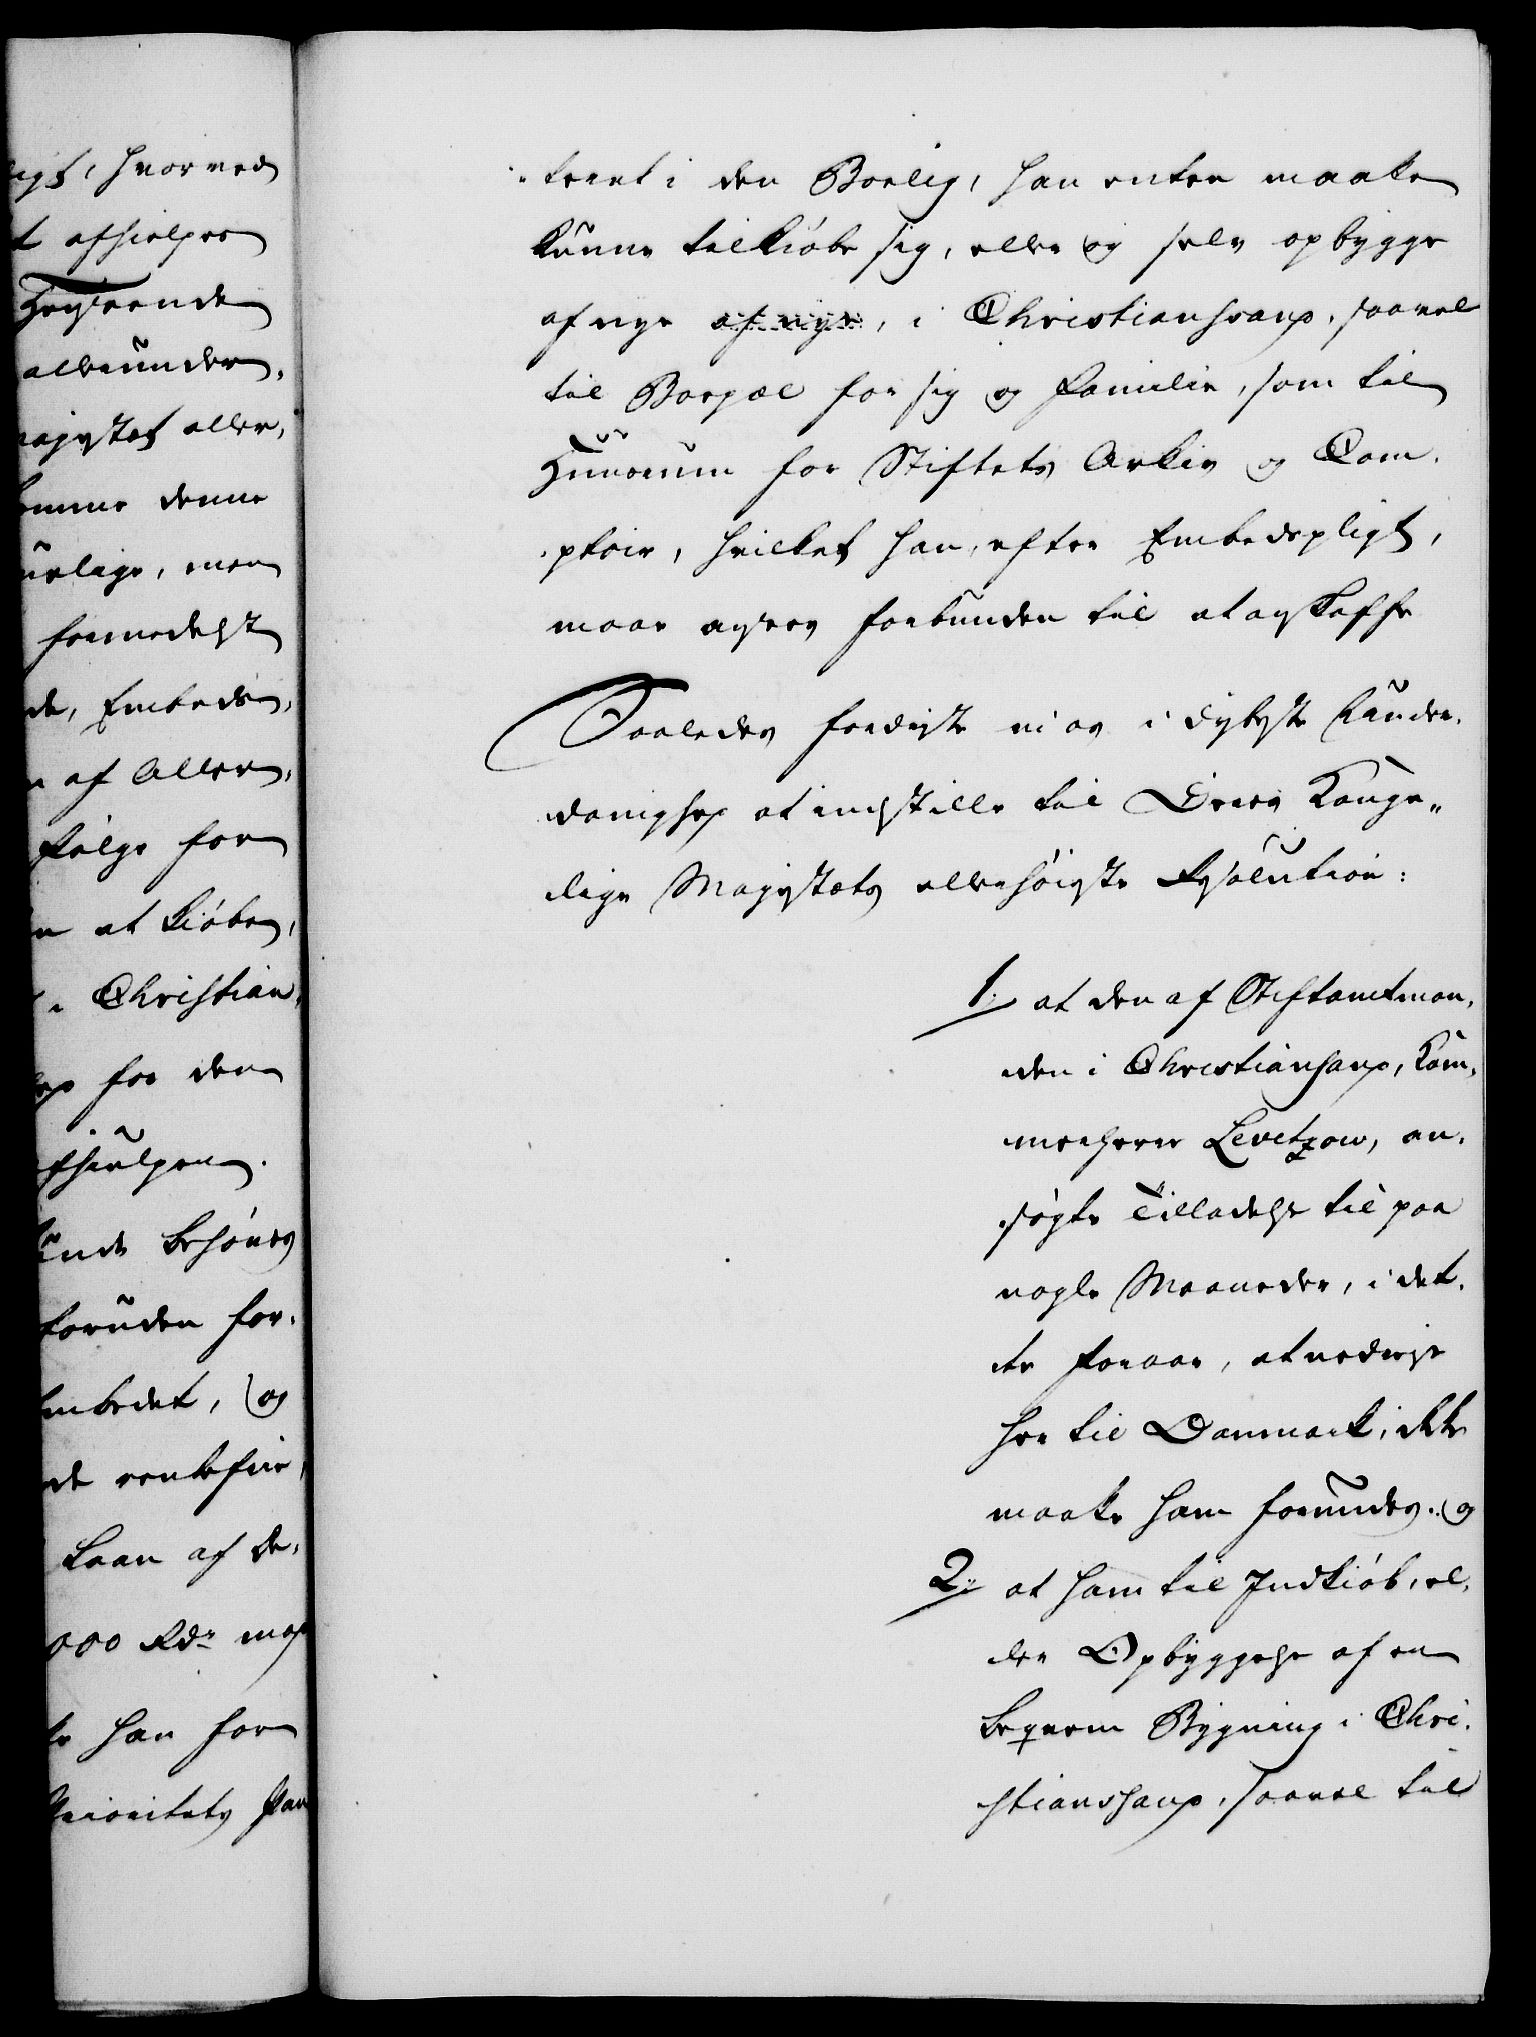 igt, hvorved
t afhielpes
Henseende
allerunder,
Majestæt aller,
komme denne
urlige, men
formedelst
de, Embeds,
n af Aller,
følge for
n at kiøbe,
i Christian,
for den
afhiælpen.
behøves
foruden for,
Embedet, og
de rentefrie,
Laan af de,
000 Rdr mod
han for
Prioritets Pan
teret i den Boelig, han enten maatte
kunne tilkiøbe sig, eller og selv opbygge
af nye af nye, i Christianssand, saavel
til Boepæl for sig og Familie, som til
Huusrum for Stiftets Arkiv og Com,
ptoir, hvilket han, efter Embedspligt,
maae agtes forbunden til at anskaffe
Saaledes fordriste vi os i dybeste Under,
danighed at indstille til Deres Konge,,
lige Majestæts allerhøieste Resolution:
1, at den af Stiftamtman,
den i Christiansand, Kam,
merherre Levetzow, an,
søgte Tilladelse til paa
nogle Maaneder, i det,
te Foraar, at nedreise
her til Danmark, ikke
maatte ham forundes. og
2, at ham til Indkiøb, el,
ler Opbyggelse af en
beqvem Bygning i Chri,
stianssand, saavel til